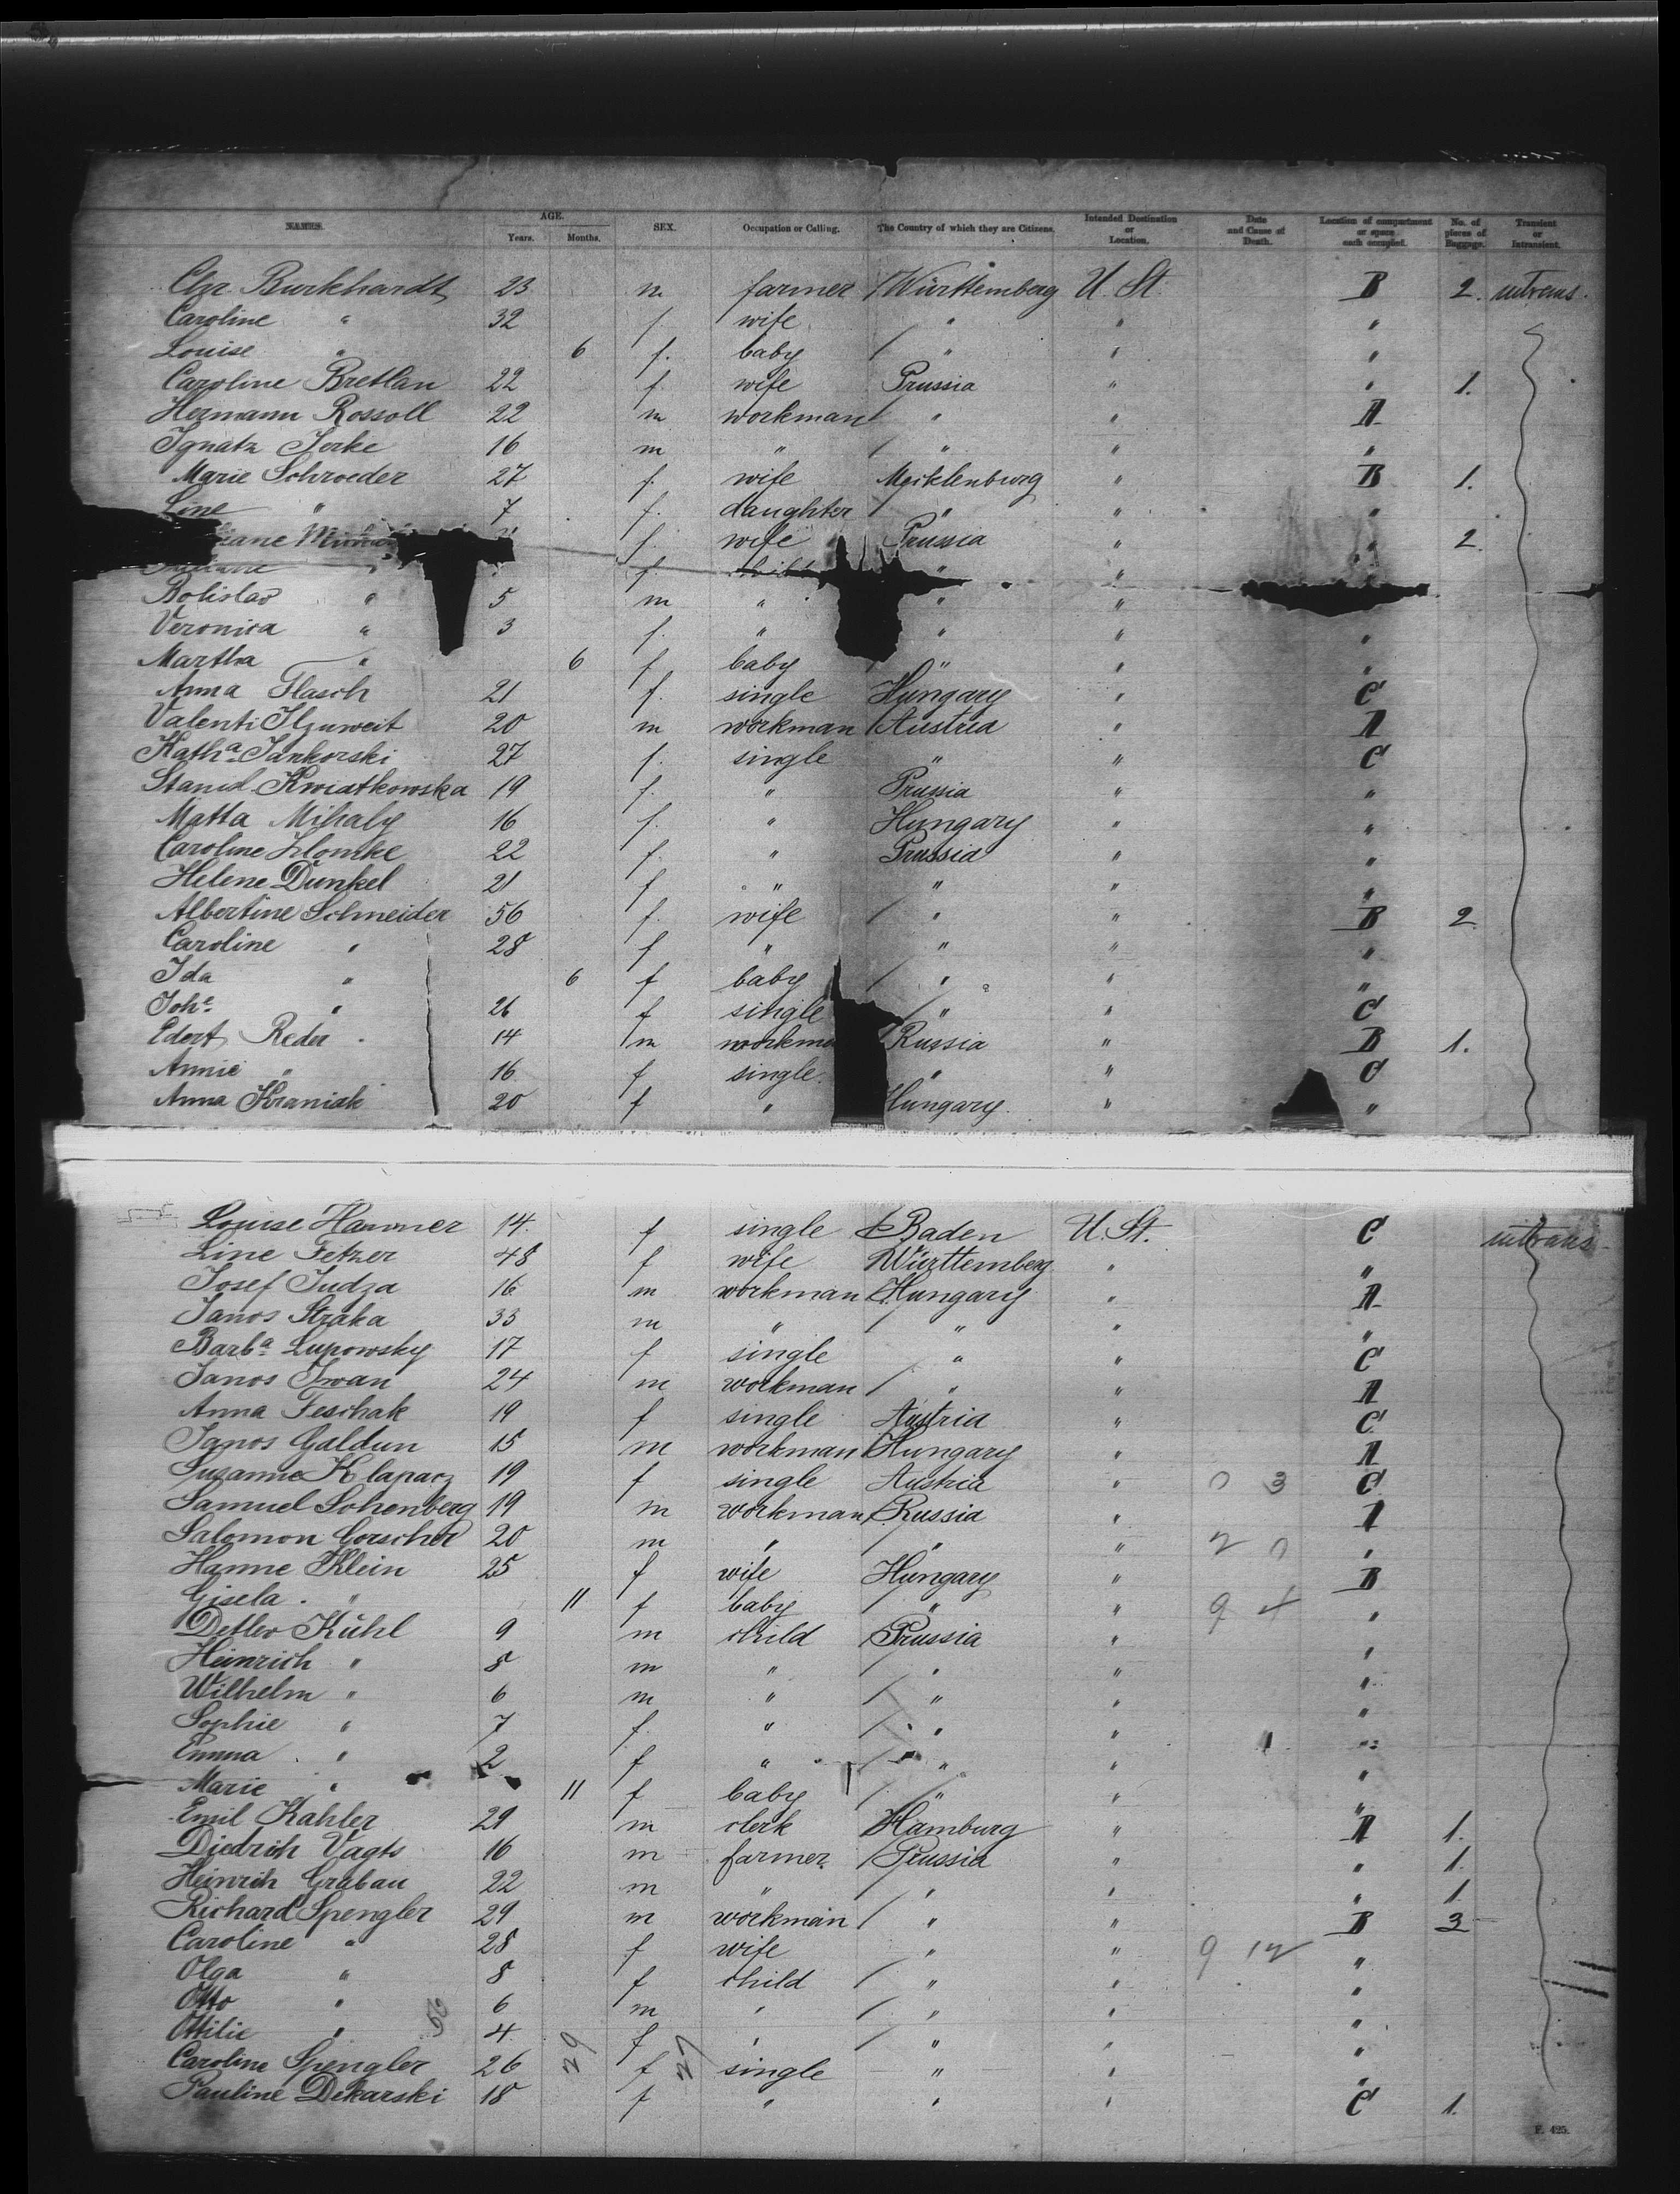 NAMES. AGE. Years. Months. SEX. Occupation or Calling. The Country of which they are Citizens. Intended Destination or Location. Date and Cause of Death. Location of compartment or space each occupied. No. of pieces of Baggage. Transient or Intransient.
Chr. Burkhardt 23 m farmer Württemberg U. St. B 2. intrans.
Caroline " 32 f. wife " " "
Louise " 6 f. baby " " "
Caroline Bretlan 22 f. wife Prussia " " 1.
Hermann Rossoll 22 m workman " " A
Ignatz Jerke 16 m " " " "
Marie Schroeder 27 f. wife Mecklenburg " B 1.
Line " 7 f. daughter " " "
f. wife Prussia " " 2.
" f. child " "
Bolislav " 5 m " " "
Veronica " 3 f. " " " "
Martha " 6 f baby " " "
Anna Flasch 21 f. single Hungary " C
Valenti Ilzuweit 20 m workman Austria " A
Kath<sup>a</sup> Jankorski 27 f. single " " C
Stanisl. Kwiatkowska 19 f. " Prussia " "
Matta Mihaly 16 f. " Hungary " "
Caroline Klomke 22 f. " Prussia " "
Helene Dunkel 21 f " " " "
Albertine Schneider 56 f. wife " " B 2
Caroline " 28 f " " " "
Ida " 6 f baby " " "
Joh<sup>e</sup> " 26 f single " " C
Edert Reder 14 m workman Russia " B 1.
Annie " 16 f single. " " C
Anna Kraniak 20 f " Hungary. " "
Louise Hammer 14. f single Baden U. St. C intrans
Line Fetzer 48 f wife Württemberg " "
Josef Judza 16 m workman Hungary " A
Janos Straka 33 m " " " "
Barb<sup>a</sup> Lupowsky 17 f single " " C
Janos Iwan 24 m workman " " A
Anna Feschak 19 f single Austria " C
Janos Galdun 15 m workman Hungary " A
Susanne Klapacz 19 f single Austria " 0 3 C
Samuel Sohenberg 19 m workman Russia " A
Salomon Gorscher 20 m " " " 2 0 "
Hanne Klein 25 f wife Hungary " B
Gisela " 11 f baby " " 9 4 "
Detlev Kühl 9 m child Prussia " "
Heinrich " 8 m " " " "
Wilhelm " 6 m " " " "
Sophie " 7 f. " " " "
Emma " 2 f " " " "
Marie " 11 f baby " " "
Emil Kahler 29 m clerk Hamburg " A 1.
Diedrich Vagts 16 m farmer Prussia " " 1.
Heinrich Grabau 22 m " " " " 1
Richard Spengler 29 m workman " " B 3
Caroline " 28 f wife " " 9 12 "
Olga " 8 f child " " "
Otto " 6 m " " " "
Ottilie " 4 f " " " "
Caroline Spengler 26 f single " " "
Pauline Dekarski 18 f " " " C 1.
29 27
F. 425.